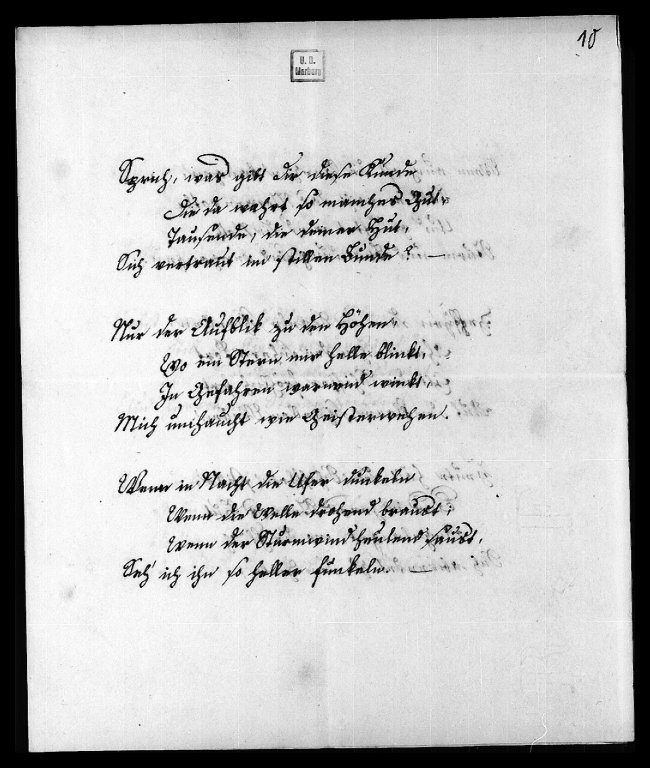 10
U. B.
Marburg
Sprich, wer gibt dir diese Kunde
Die da wahrt so manches Gut,
Tausende, die deiner Hut,
Sich vertraut im stillen Bunde? —
Nur der Aufblik zu den Höhen,
Wo ein Stern mir helle blinkt,
In Gefahren warnend winkt,
Mich umhaucht wie Geisterwehen.
Wenn in Nacht die Ufer dunkeln
Wenn die Welle drohend braust;
Wenn der Sturmwind heulend saust,
Seh' ich ihn so heller funkeln. —